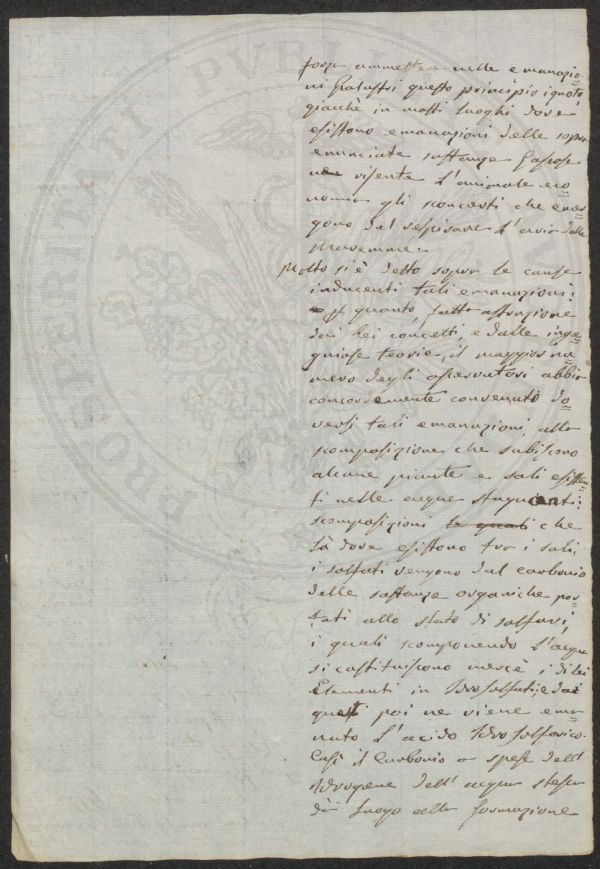 forza ammettere nelle emanazio-
ni palustri questo principio ignoto,
giacchè in molti luoghi dove
esistono emanazioni delle sopra
enunciate sostanze gasose
non risente l'animale eco-
nomia gli sconcerti che emer-
gono dal respirare l'aria delle
Maremme.
Molto si è detto sopra le cause
inducenti tali emanazioni:
quanto, fatta astrazione
dai bei concetti, e dalle inge-
gniose teorie, il maggior nu-
mero degli osservatori abbia
concordemente convenuto do-
versi tali emanazioni, alla
scomposizione che subiscono
alcune piante e sali esisten-
ti nelle acque stagnanti:
scomposizioni le quali che
là dove esistono tra i sali,
i solfati vengono dal carbonio
delle sostanze organiche por-
tati allo stato di solfuri,
i quali scomponendo l'acqua
si costituiscono mercè i di lei
Elementi in Idrosolfati, e da
questi poi ne viene ema-
nato l'acido Idrosolforico.
Così il Carbonio a spese dell'
Idrogene dell'acqua stessa
dà luogo alla formazione
PROSPERITATI PUBLICAE